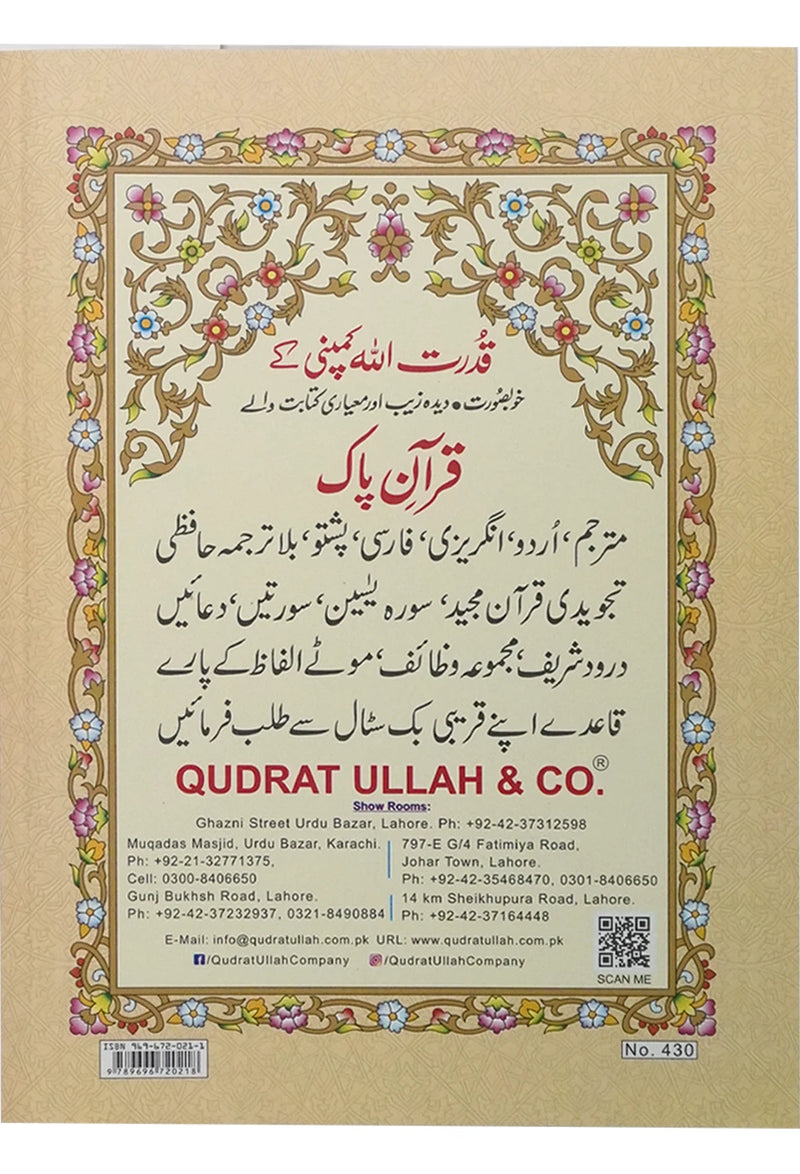 قُدرت اللہ کمپنی کے
خوبصُورت • دیدہ زیب اور معیاری کتابت والے
قرآنِ پاک
مترجم، اُردو، انگریزی، فارسی، پشتو، بلا ترجمہ حافظی
تجویدی قرآن مجید، سورہ یٰسین، سورتیں، دعائیں
درود شریف، مجموعہ وظائف، موٹے الفاظ کے پارے
قاعدے اپنے قریبی بک سٹال سے طلب فرمائیں
QUDRAT ULLAH & CO.®
Show Rooms:
Ghazni Street Urdu Bazar, Lahore. Ph: +92-42-37312598
Muqadas Masjid, Urdu Bazar, Karachi.
Ph: +92-21-32771375,
Cell: 0300-8406650
Gunj Bukhsh Road, Lahore.
Ph: +92-42-37232937, 0321-8490884
797-E G/4 Fatimiya Road,
Johar Town, Lahore.
Ph: +92-42-35468470, 0301-8406650
14 km Sheikhupura Road, Lahore.
Ph: +92-42-37164448
E-Mail: info@qudratullah.com.pk URL: www.qudratullah.com.pk
/QudratUllahCompany /QudratUllahCompany
SCAN ME
ISBN 969-672-021-1
9 789696 720218
No. 430